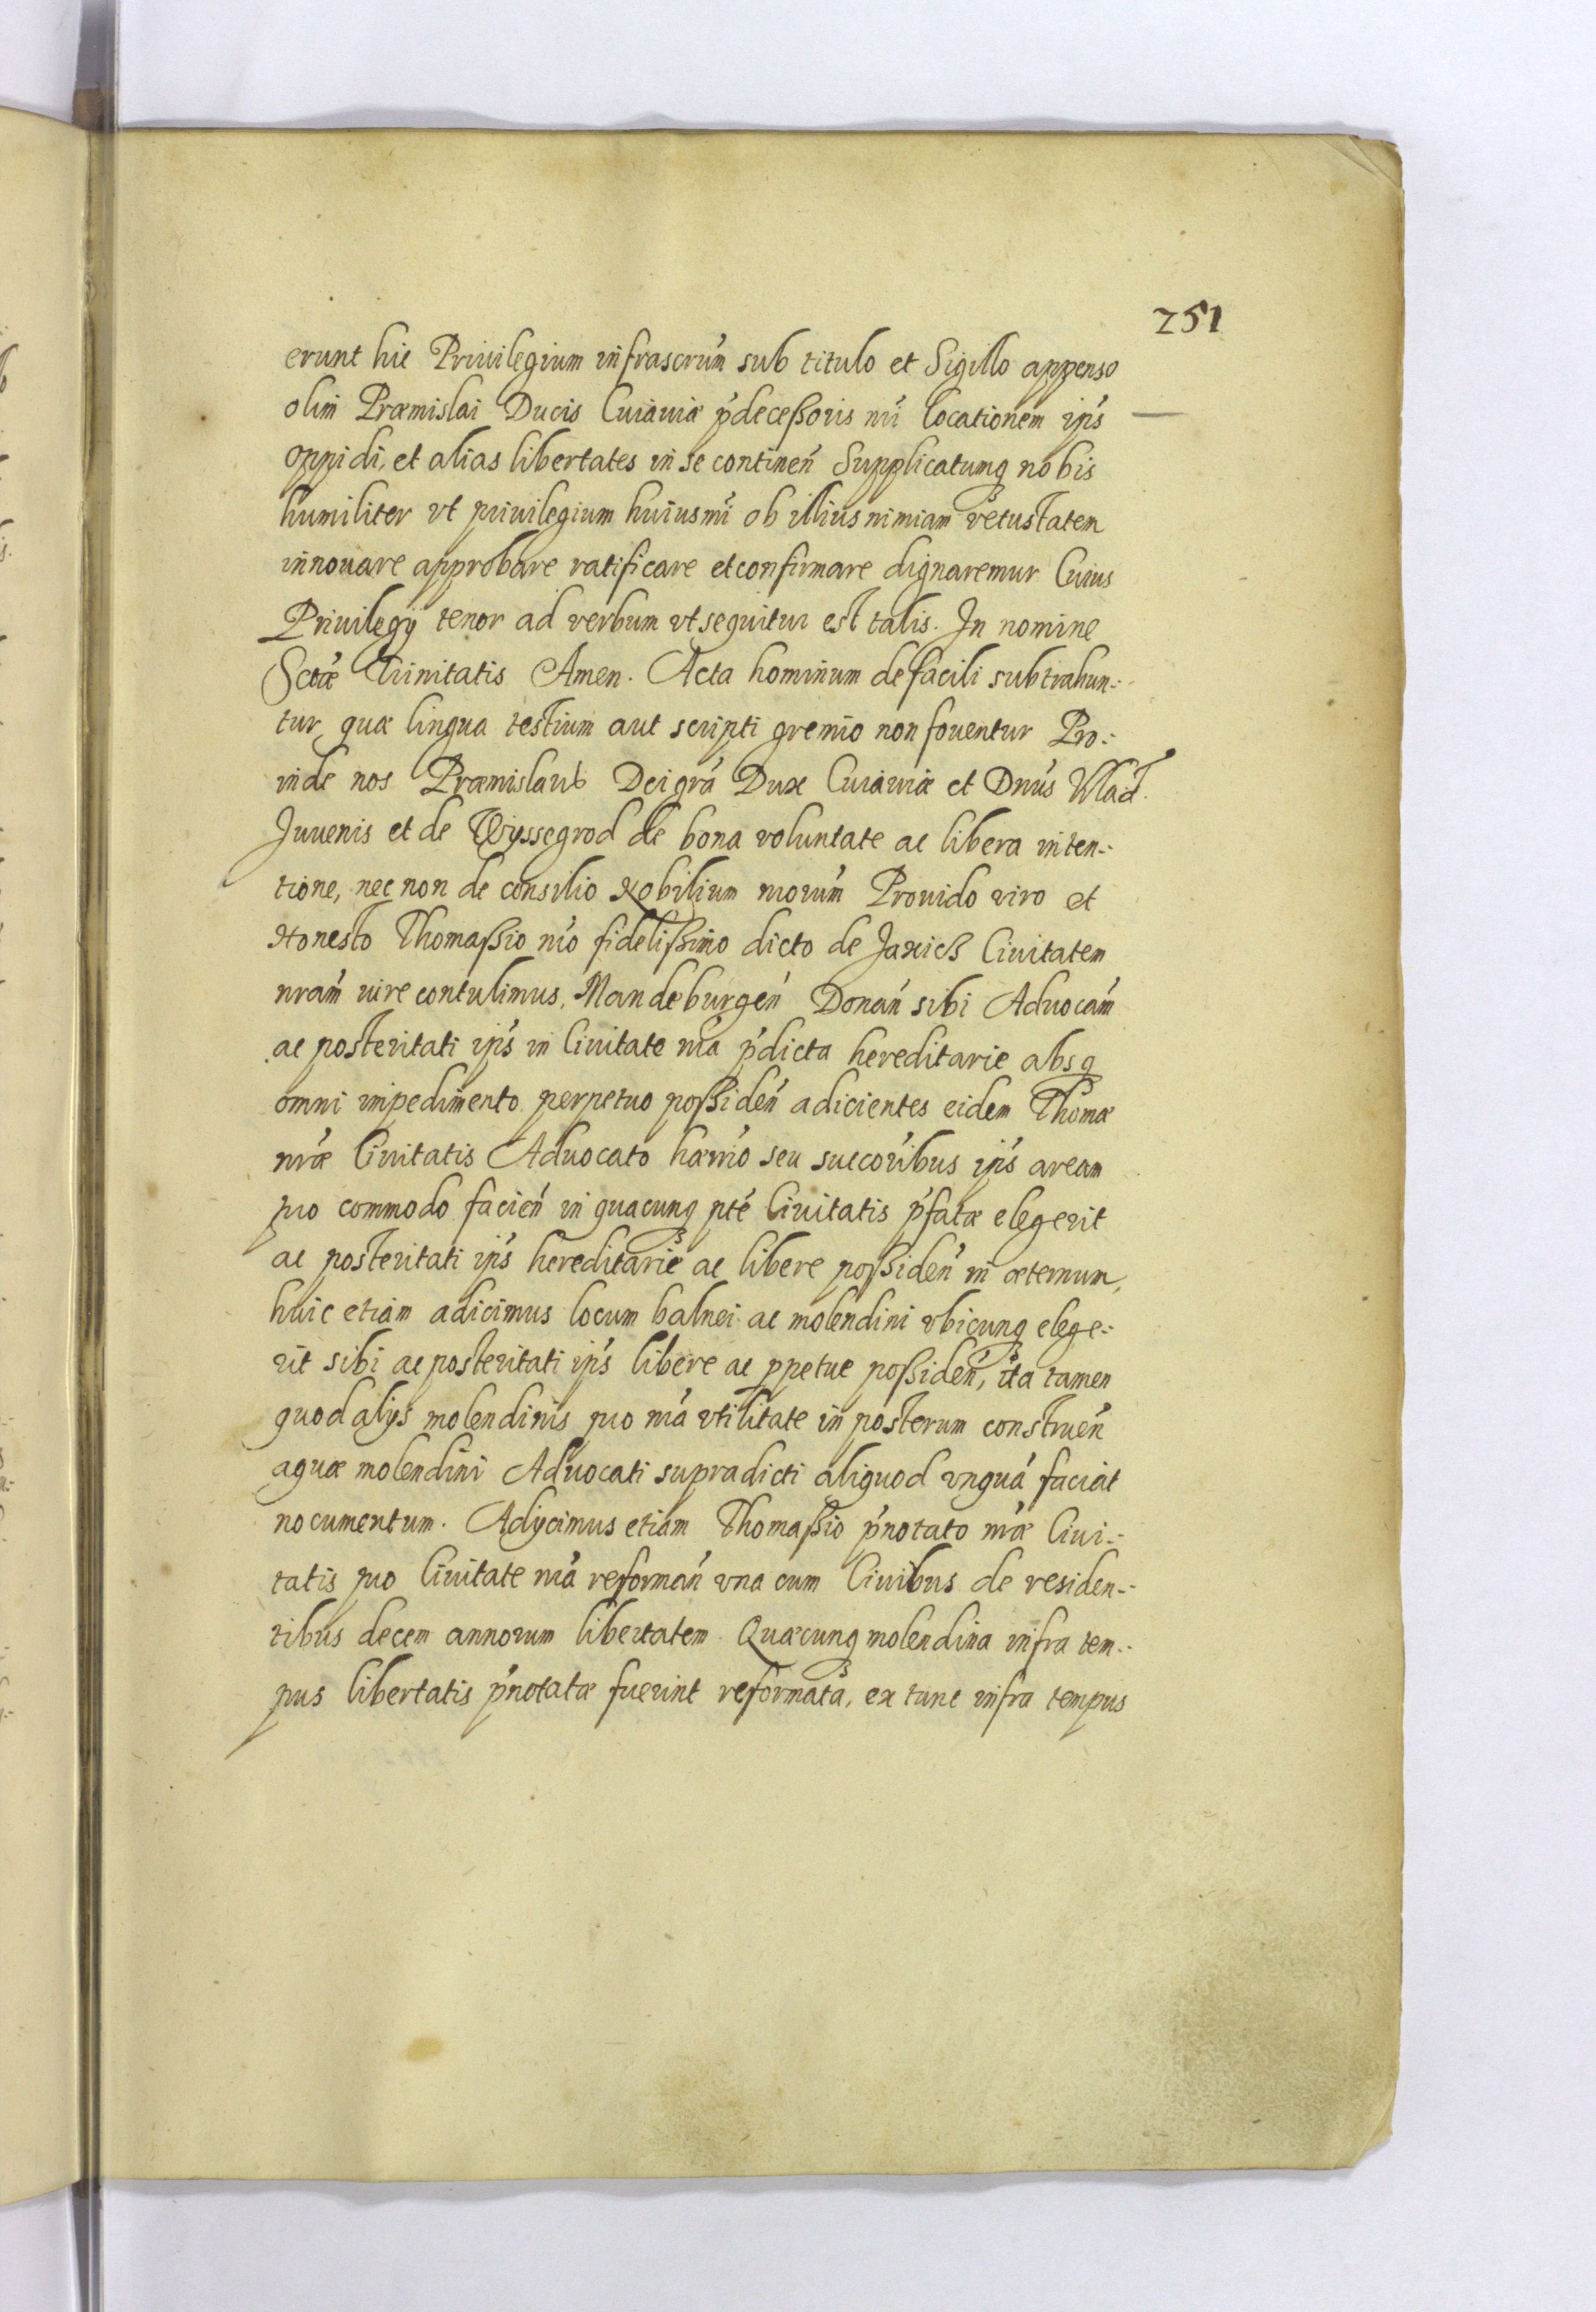 251
erunt hic Priuilegium infrascrúm sub titulo et Sigillo appenso
olim Præmislai Ducis Cuiauiæ p'deceßoris nrí locationem ips'
oppidi, et alias libertates in se continen' Supplicatumq nobis
humiliter vt priuilegium huiusmi' ob illius nimiam vetustatem
innouare approbare ratificare et confirmare dignaremur Cuius
Priuilegÿ tenor ad verbum vt sequitur est talis. In nomine
Sctæ' Trinitatis Amen. Acta hominum de facili subtrahun-:
tur, quæ lingua testium aut scripti gremio non fouentur Pro-:
inde nos Præmislaus Dei grá Dux Cuiauiæ et Dnús Wlad.
Juuenis et de Wÿssegrod de bona voluntate ac libera inten-:
tione, nec non de consilio Nobilium nrorúm Prouido viro et
Honesto Thomaßio nró fidelißimo dicto de Jaxich Ciuitatem
nrám iure contulimus, Mandeburgen' Donan' sibi Aduocám
ac posteritati ips' in Ciuitate nrá p'dicta hereditarie absq
omni impedimento perpetuo poßiden' adicientes eidem Thomæ
nræ' Ciuitatis Aduocato hærró seu succoríbus ips' aream
pro commodo facien' in quacunq pté Ciuitatis p'fatæ elegerit
ac posteritati ips' hereditarie ac libere poßiden' in æternum,
huic etiam adicimus locum balnei ac molendini vbicunq elege-:
rit sibi ac posteritati ips' libere ac ppetue poßiden', ita tamen
quod alÿs molendinis pro nrá vtilitate in posterum construen'
aquæ molendini Aduocati supradicti aliquod vnquá faciat
nocumentum. Adÿcimus etiam Thomaßio p'notato nræ' Ciui-:
tatis pro Ciuitate nrá reforman' vna cum Ciuibus de residen-:
tibus decem annorum libertatem. Quæcunq molendina infra tem-:
pus libertatis p'notatæ fuerint reformata, ex tunc infra tempus